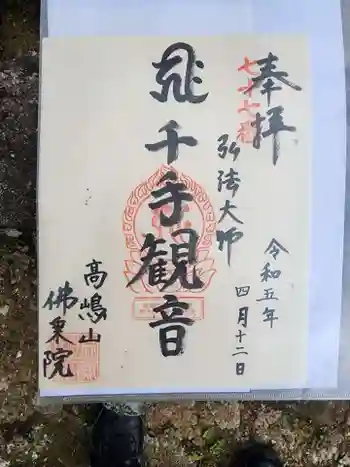 奉拝
七十七
弘法大師
令和五年
四月十二日
千手観音
高嶋山
佛乗院